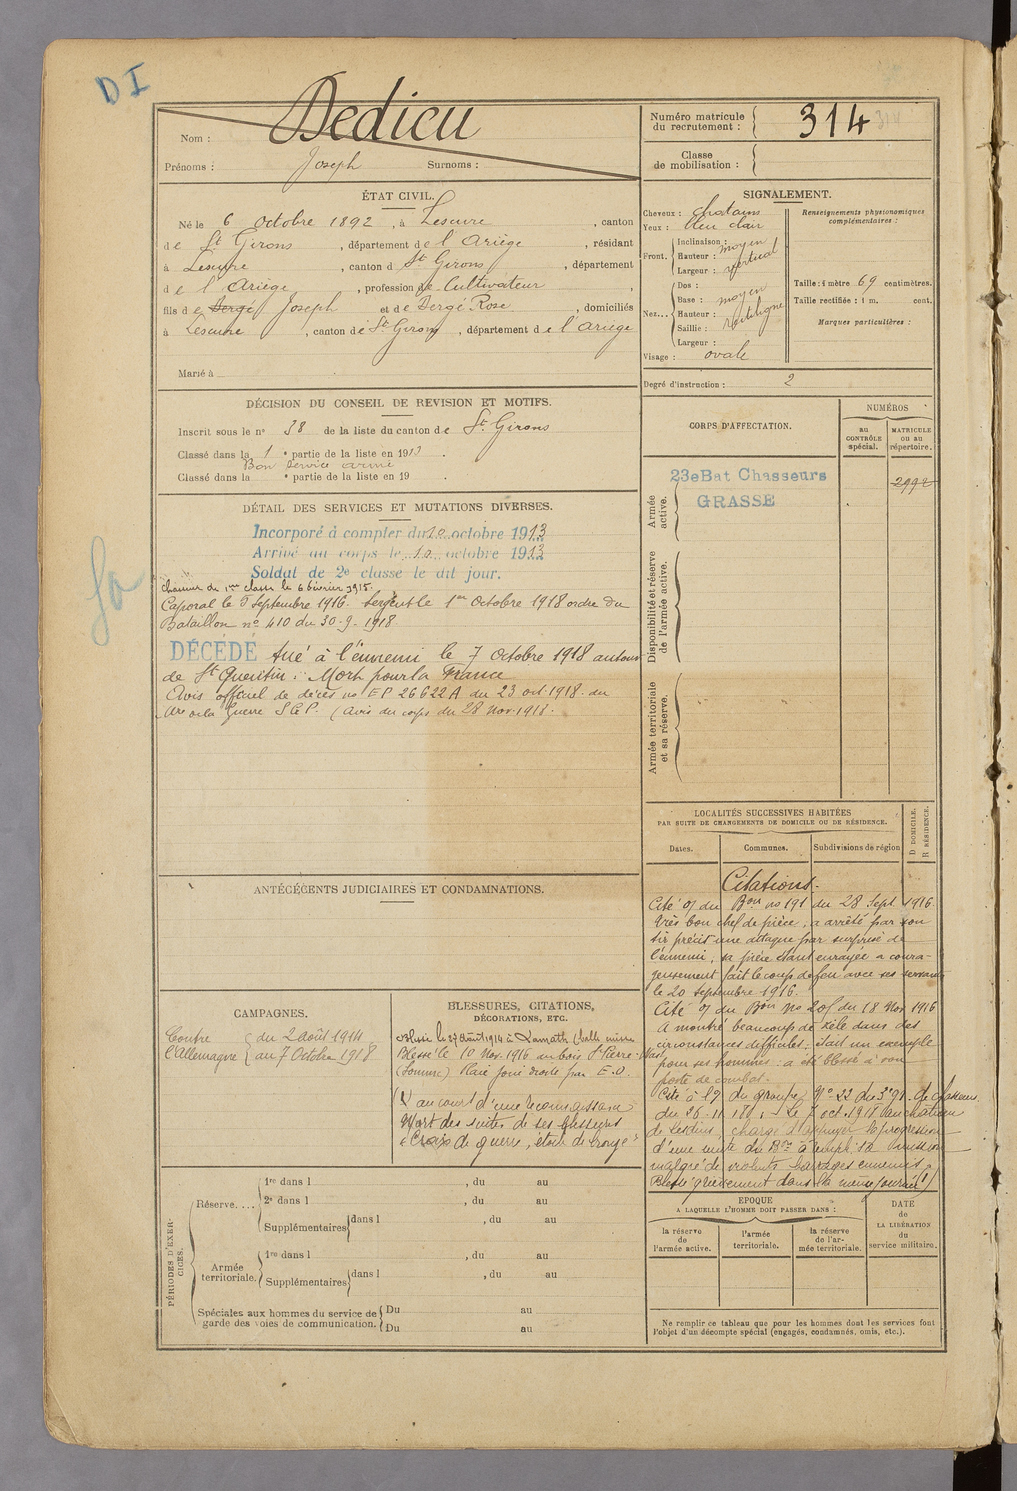 DI
Nom : Dedieu
Prénoms : Joseph Surnoms :
Numéro matricule du recrutement : 314
314
Classe de mobilisation :
ÉTAT CIVIL.
Né le 6 octobre 1892, à Lescure, canton
de St Girons, département de l'Ariège, résidant
à Lescure, canton d St Girons, département
de l'Ariège, profession de Cultivateur,
fils de Bergé Joseph et de Bergé Rose, domiciliés
à Lescure, canton de St Girons, département de l'Ariège
Marié à
SIGNALEMENT.
Cheveux : chatains
Yeux : bleu clair
Front. Inclinaison : moyen
Hauteur :
Largeur : vertical
Nez... Dos :
Base : moyen
Hauteur :
Saillie : rectiligne
Largeur :
Visage : ovale
Renseignements physionomiques complémentaires :
Taille : 1 mètre 69 centimètres.
Taille rectifiée : 1 m. cent.
Marques particulières :
Degré d'instruction : 2
DÉCISION DU CONSEIL DE REVISION ET MOTIFS.
Inscrit sous le n° 38 de la liste du canton de St Girons
Classé dans la 1e partie de la liste en 1913.
Bon service armé
Classé dans la e partie de la liste en 19 .
DÉTAIL DES SERVICES ET MUTATIONS DIVERSES.
Incorporé à compter du 10 octobre 1913
Arrivé au corps le 10 octobre 1913
Soldat de 2e classe le dit jour.
Chasseur de 1re classe le 6 février 1915.
Caporal le 5 Septembre 1916. Sergent le 1er Octobre 1918 ordre du
Bataillon n° 410 du 30-9-1918
DÉCÉDÉ tué à l'ennemi le 7 octobre 1918 autour
de St Quentin : Mort pour la France
Avis officiel de décès no EP 26622A du 23 oct. 1918. du
de la Guerre S G P. (Avis du corps du 28 Nov. 1918.
CORPS D'AFFECTATION.
NUMÉROS
au CONTRÔLE spécial.
MATRICULE ou au répertoire.
Armée active.
23e Bat Chasseurs
GRASSE
2992
Disponibilité et réserve de l'armée active.
Armée territoriale et sa réserve.
LOCALITÉS SUCCESSIVES HABITÉES
PAR SUITE DE CHANGEMENTS DE DOMICILE OU DE RÉSIDENCE.
Dates. Communes. Subdivisions de région
D DOMICILE. R RÉSIDENCE.
Citations.
Cité O/ du Bon no 191 du 28 Sept 1916.
très bon chef de pièce, a arrêté par son
tir précis une attaque par surprise de
l'ennemi, sa pièce étant enrayée a coura-
geusement fait le coup de feu avec ses servants
le 20 septembre 1916.
Cité O/ du Bon no 205 du 18 Nov 1916
A montré beaucoup de zèle dans des
circonstances difficiles : était un exemple
pour ses hommes : a été blessé à son
poste de combat.
Cité à l'O du groupe N° 22 du de chasseurs
du 26-11-18 : Le 7 oct. 1918 au château
de Lesdins, chargé d'appuyer la progression
d'une unité du Bon a rempli sa mission
malgré de violents barrages ennemis.
Blessé grièvement dans la même journée
ANTÉCÉCENTS JUDICIAIRES ET CONDAMNATIONS.
CAMPAGNES.
Contre l'Allemagne du 2 août 1914
au 7 Octobre 1918
BLESSURES, CITATIONS,
DÉCORATIONS, ETC.
le 27 Août 1914 à
Blessé le 10 Nov. 1916 au bois St Pierre-Vaast
(Somme) Plaie joue droite par E.O.
au cours d'une reconnaissance
Mort des suites de ses blessures
"Croix de guerre, étoile de bronze"
PÉRIODES D'EXERCICES.
Réserve.... 1re dans l , du au
2e dans l , du au
Supplémentaires dans l , du au
Armée territoriale. 1re dans l , du au
Supplémentaires dans l , du au
Spéciales aux hommes du service de garde des voies de communication. Du au
Du au
EPOQUE
A LAQUELLE L'HOMME DOIT PASSER DANS :
la réserve de l'armée active.
l'armée territoriale.
la réserve de l'armée territoriale.
DATE de LA LIBÉRATION du service militaire.
Ne remplir ce tableau que pour les hommes dont les services font
l'objet d'un décompte spécial (engagés, condamnés, omis, etc.).